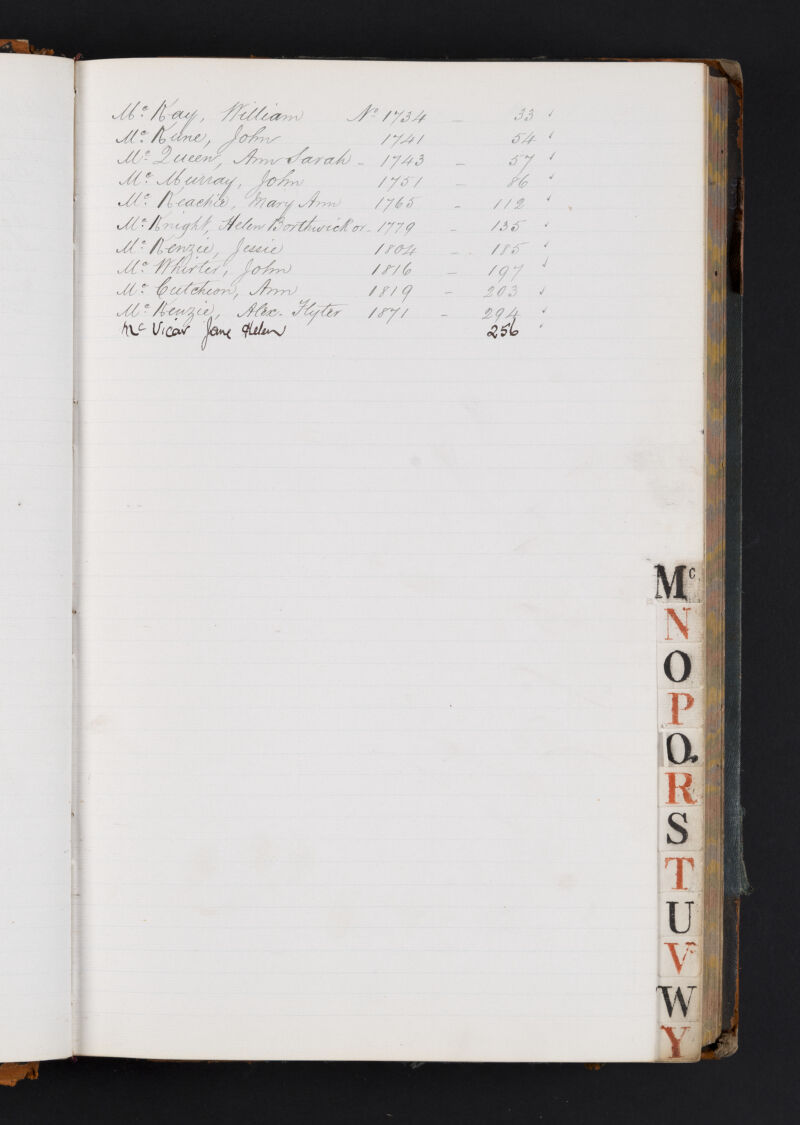 Mc Kay, William No 1734 – 33 ✓
Mc Kune, John 1741 54 ✓
Mc Queen, Ann Sarah – 1743 – 57 ✓
Mc Murray, John 1751 – 86 ✓
Mc Keachie, Mary Ann 1765 – 112 ✓
Mc Knight, Helen Borthwick or – 1779 – 135 ✓
Mc Kenzie, Jessie 1804 – 185 ✓
Mc Whirter, John 1816 – 197 ✓
Mc Cutcheon, Ann 1819 – 203 ✓
Mc Kenzie, Alex. Flyter 1871 – 294 ✓
Mc Vicar Jane Helen 256 ✓
Mc
N
O
P
Q
R
S
T
U
V
W
Y